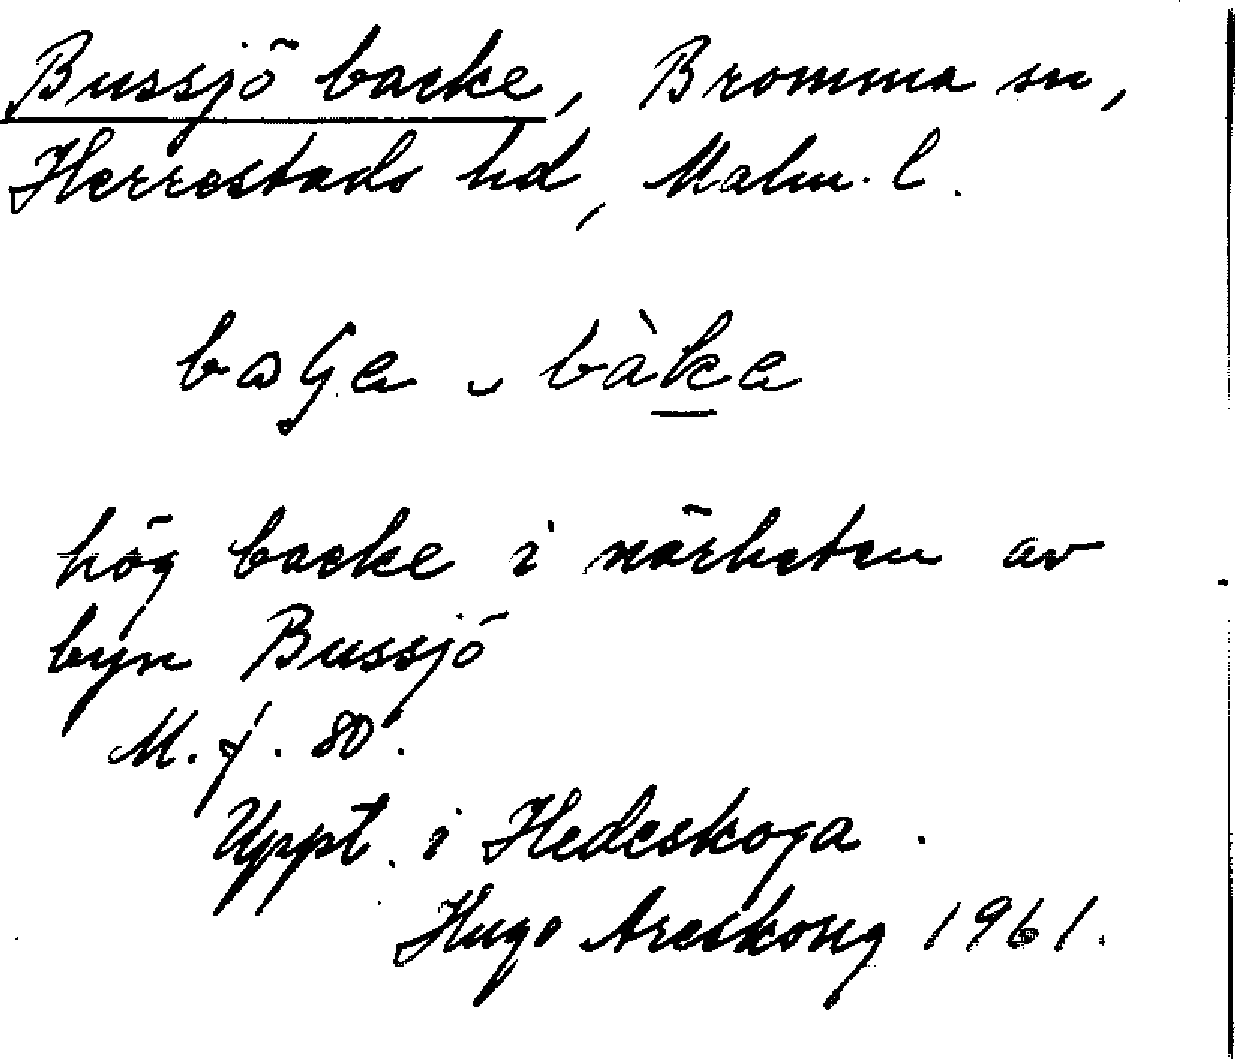 Bussjö backe, Bromma sn,
Herrestads hd, Malm. l.
bàka
hög backe i närheten av
byn Bussjö
M. f. 80.
Uppt. i Hedeskoga.
Hugo Areskoug 1961.